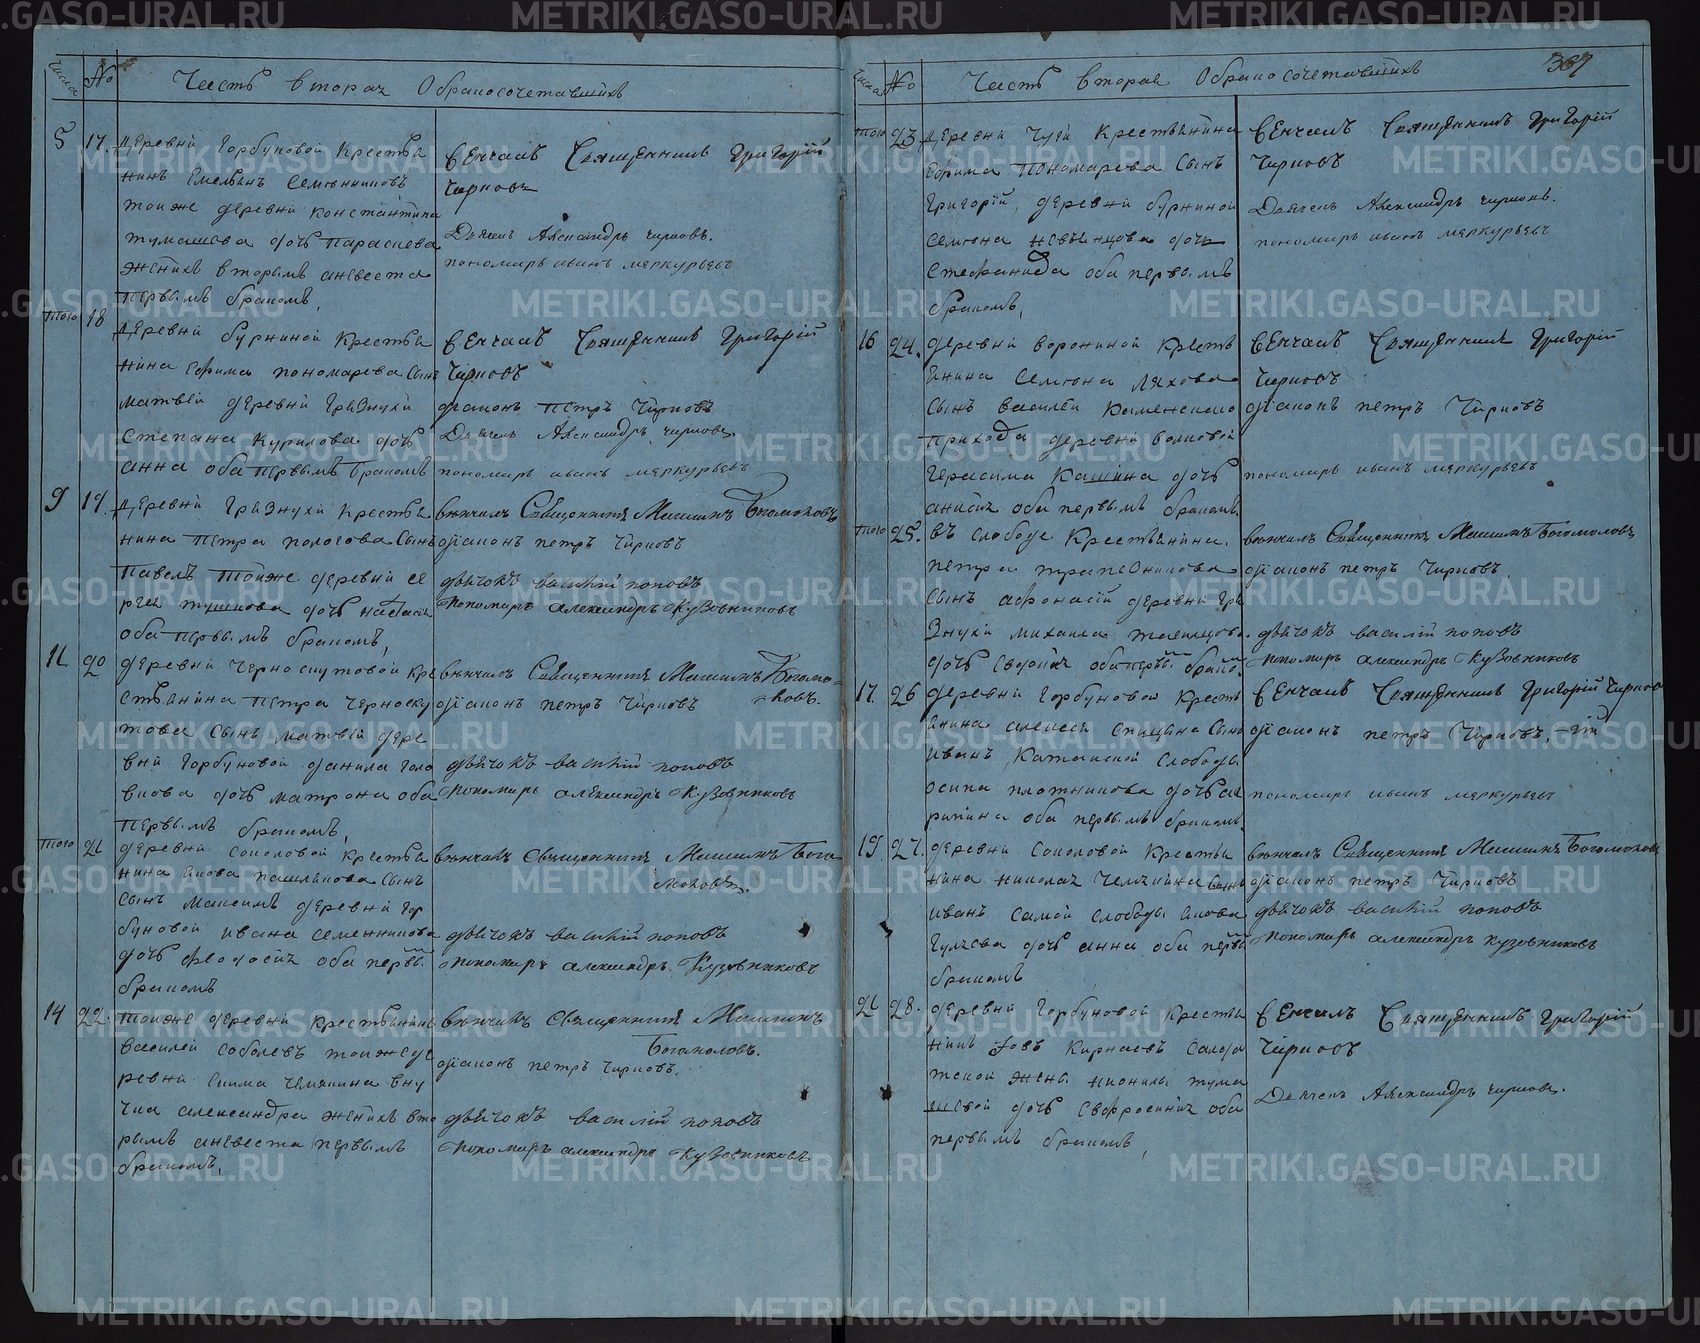 Числа
No
Часть вторая О бракосочетавшихъ
5
17.
деревни Горбуновой крестья
нинъ Емельянъ Семенниковъ
тоиже деревни константина
тумашева дочь параскева
женихъ вторымъ аневеста
первымъ бракомъ,
венчалъ Священникъ Григорій
Чирковъ
Дьячекъ Александръ чирковъ.
пономарь иванъ меркурьевъ
того
18
деревни буркиной крестья
нина Ефима пономарева сынъ
матвей деревни Грязнухи
Степана курилова дочь
анна оба первымъ бракомъ
венчалъ Священникъ Григорій
Чирковъ
діаконъ петръ Чирковъ
Дьячекъ Александръ чирковъ.
пономарь иванъ меркурьевъ
9
19.
деревни Грязнухи крестья
нина петра пологова сынъ
павелъ тоиже деревни се
ргея тушкова дочь настасія
оба первымъ бракомъ,
венчалъ Священникъ Максимъ Богомоловъ
діаконъ петръ Чирковъ
дьячокъ василій поповъ
Пономарь александръ Кузовниковъ
11
20
деревни черноскутовой кре
стьянина петра черноску
това сынъ матвей дере
вни Горбуновой данила голо
вкова дочь матрона оба
первымъ бракомъ,
венчалъ Священникъ Максимъ Богомо=
ловъ.
діаконъ петръ Чирковъ
дьячокъ василій поповъ
Пономарь александръ Кузовниковъ
того
21
деревни соколовой крестья
нина Якова пашлякова сынъ
сынъ максимъ деревни Гор
буновой ивана семенникова
дочь феодосия оба первы
бракомъ
венчалъ Священникъ Максимъ Бого
моловъ.
дьячокъ василій поповъ
Пономарь александръ Кузовниковъ
14
22.
тоиже деревни крестьянинъ
василей соболевъ тоиже де
ревни внучка александра женихъ вто
рымъ аневеста первымъ
бракомъ,
венчалъ Священникъ Максимъ
Богомоловъ.
діаконъ петръ Чирковъ,
дьячокъ василій поповъ
Пономарь александръ Кузовниковъ
Числа
No
Часть вторая О бракосочетавшихъ
387
того
23
деревни Чуги крестьянина
Ефима Пономарева сынъ
Григорій, деревни буркиной
семиона невьянцова дочь
Стефанида оба первымъ
бракомъ,
венчалъ Священникъ Григорій
Чирковъ
Дьячекъ Александръ чирковъ.
пономарь иванъ меркурьевъ
16
24.
деревни ворожиной кресть
янина Семиона Ляхова
сынъ василей каменского
прихода деревни волковой
Герасима Кашина дочь
анисия оба первымъ бракомъ
венчалъ Священникъ Григорій
Чирковъ
діаконъ петръ Чирковъ
пономарь иванъ меркурьевъ
того
25.
въ слободе крестьянина
петра трапезникова
сынъ афонасій деревни Гря
знухи михаила
дочь евдокия оба первы брако.
венчалъ Священникъ Максимъ Богомоловъ
діаконъ петръ Чирковъ
дьячокъ василій поповъ
Пономарь александръ Кузовниковъ
17.
26
деревни Горбуновой кресть
янина алексея спицына сынъ
иванъ, Катайской слободы
осипа плотникова дочь ак
рипина оба первымъ бракомъ.
венчалъ Священникъ Григорій Чирков
діаконъ петръ Чирковъ,
пономарь иванъ меркурьевъ
19.
27.
деревни соколовой крестья
нина николая сынъ
иванъ самой слободы якова
Гуляева дочь анна оба первы
бракомъ
венчалъ Священникъ Максимъ Богомоловъ
діаконъ петръ Чирковъ
дьячокъ василій поповъ
Пономарь александръ кузовниковъ
21
28.
деревни Горбуновой крестья
нинъ Іовъ Корнаевъ салда
тской жены неонилы тума
шевой дочь евфросиния оба
первымъ бракомъ,
венчалъ Священникъ Григорій
Чирковъ
Дьячекъ Александръ чирковъ.
METRIKI.GASO-URAL.RU